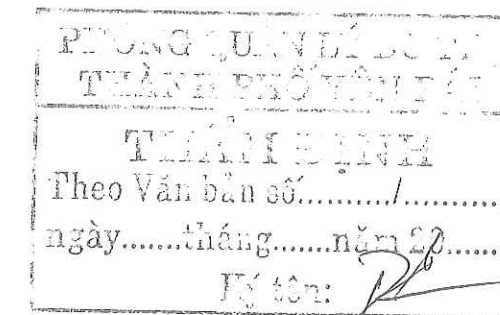 PHÒNG QUẢN LÍ ĐÔ THỊ
THÀNH PHỐ
THẨM ĐỊNH
Theo Văn bản số........../..........
ngày.......tháng.......năm 20......
Ký tên: